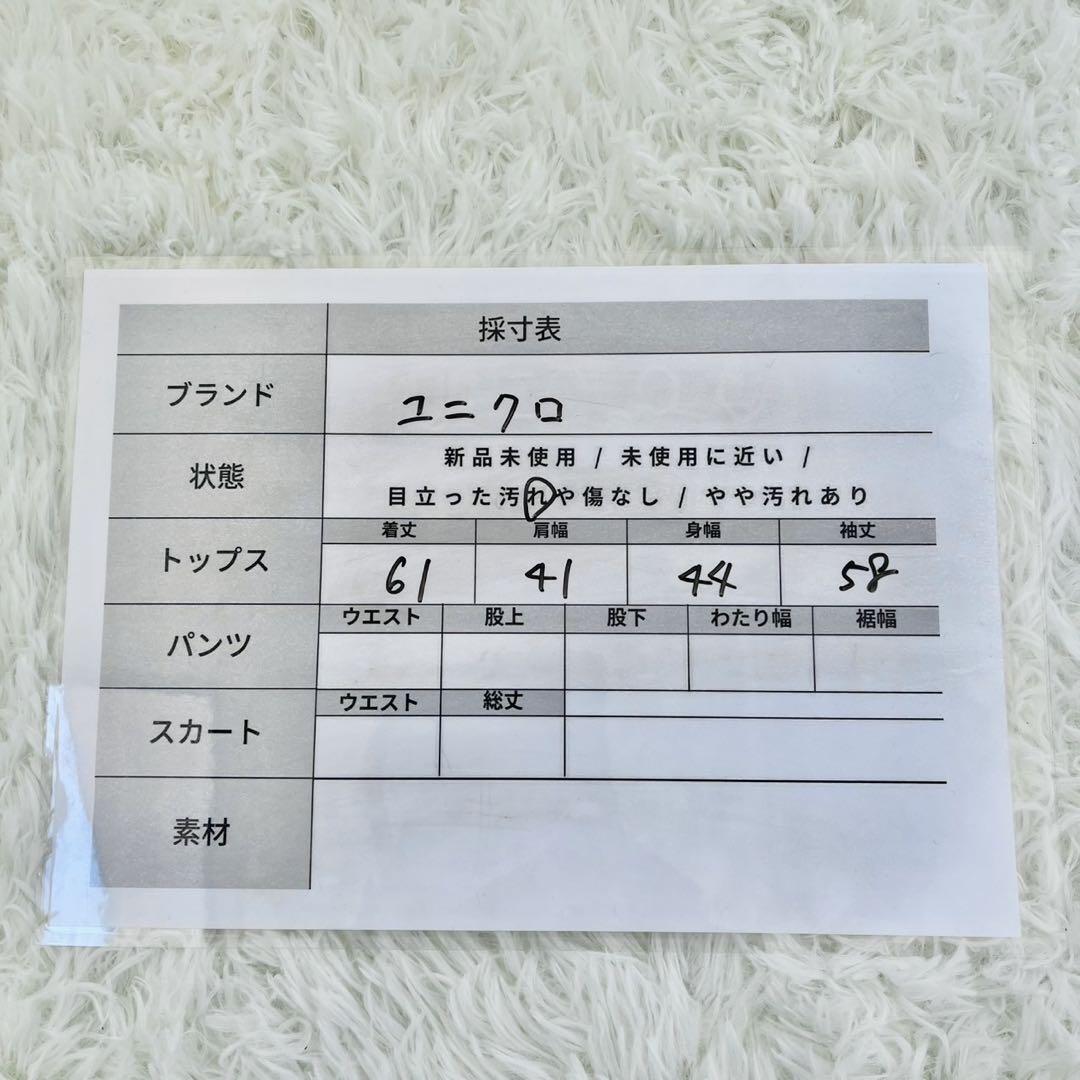 採寸表
ブランド ユニクロ
状態 新品未使用 / 未使用に近い /
目立った汚れや傷なし / やや汚れあり
トップス 着丈 肩幅 身幅 袖丈
61 41 44 58
パンツ ウエスト 股上 股下 わたり幅 裾幅
スカート ウエスト 総丈
素材